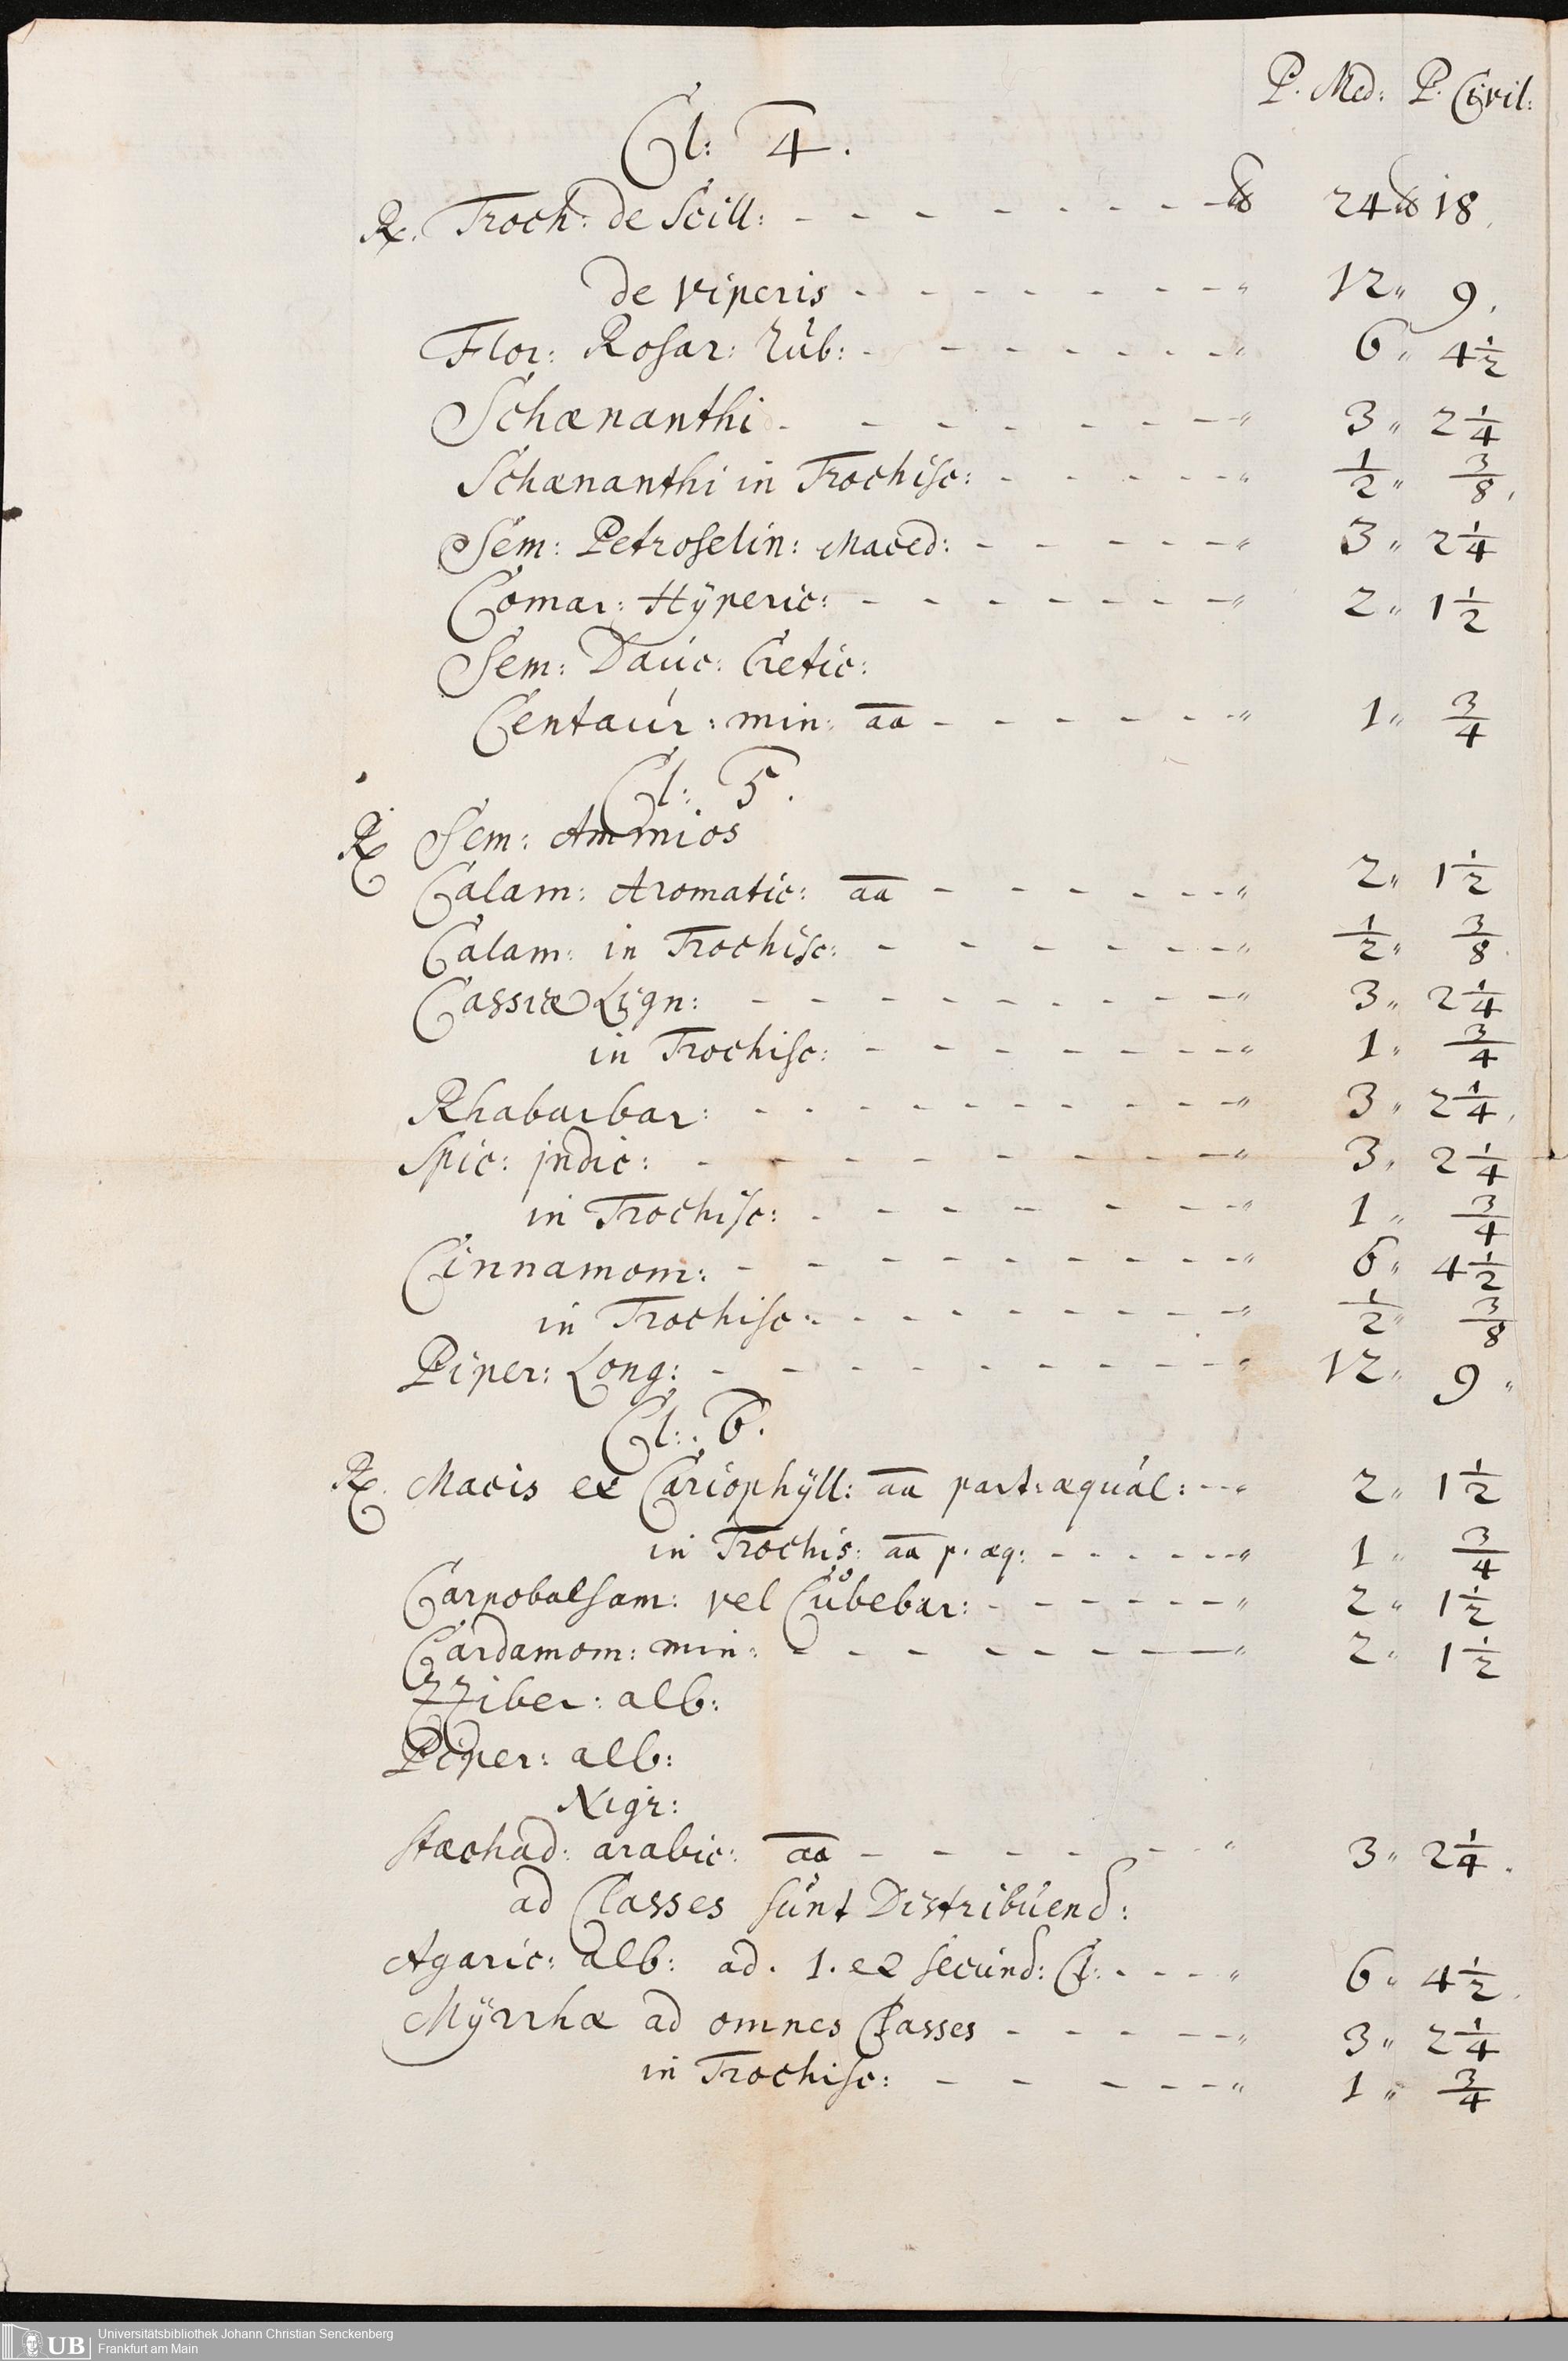 P. Med: P. Civil:
Cl: 4.
℞. Troch: de Scill: - - - - - - - - ℔ 24 ℔ 18.
de viperis - - - - - - - " 12 " 9.
Flor: Rosar: Rúb: - - - - - - - " 6 " 4 1/2
Schænanthi - - - - - - - " 3 " 2 1/4
Schænanthi in Trochisc: - - - - - " 1/2 " 3/8.
Sem: Petroselin: Maced: - - - - - " 3 " 2 1/4
Comar: Hÿperic: - - - - - - - " 2 " 1 1/2
Sem: Daúc: Cretic:
Centaúr: min: aa - - - - - - " 1 " 3/4
Cl: 5.
℞ Sem: Ammios
Calam: Aromatic: aa - - - - - - " 2 " 1 1/2
Calam: in Trochisc: - - - - - - " 1/2 " 3/8.
Cassiæ Lign: - - - - - - - - - " 3 " 2 1/4
in Trochisc: - - - - - - - " 1 " 3/4
Rhabarbar: - - - - - - - - - - " 3 " 2 1/4.
Spic: jndic: - - - - - - - - - " 3 " 2 1/4
in Trochisc: - - - - - - - " 1 " 3/4
Cinnamom: - - - - - - - - - " 6 " 4 1/2
in Trochisc: - - - - - - - - " 1/2 " 3/8
Piper: Long: - - - - - - - - - " 12 " 9 "
Cl: 6.
℞. Macis et Cariophÿll: aa part: æquál: - - " 2 " 1 1/2
in Trochis: aa p. æq: - - - - - - " 1 " 3/4
Carpobalsam: vel Cúbebar: - - - - - - " 2 " 1 1/2
Cardamom: min: - - - - - - - " 2 " 1 1/2
ZZiber: alb:
Piper: alb:
Nigr:
Stæchad: arabic: aa - - - - - - " 3 " 2 1/4.
ad Classes súnt Distribúend:
Agaric: alb: ad. 1. et secúnd: Cl: - - - " 6 " 4 1/2.
Mÿrrhæ ad omnes Classes - - - - - " 3 " 2 1/4
in Trochisc: - - - - - " 1 " 3/4
UB Universitätsbibliothek Johann Christian Senckenberg
Frankfurt am Main